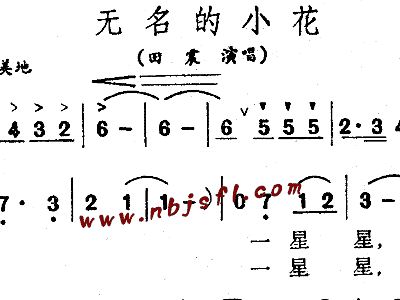 无名的小花
(田震演唱)
美地
4 3 2 | 6 – | 6 – | 6 5 5 5 | 2· 3
7· 3 | 2 1 | 1 ) | 0 7 1 2 | 3 –
www.nbjsfl.com
一 星 星,
一 星 星,